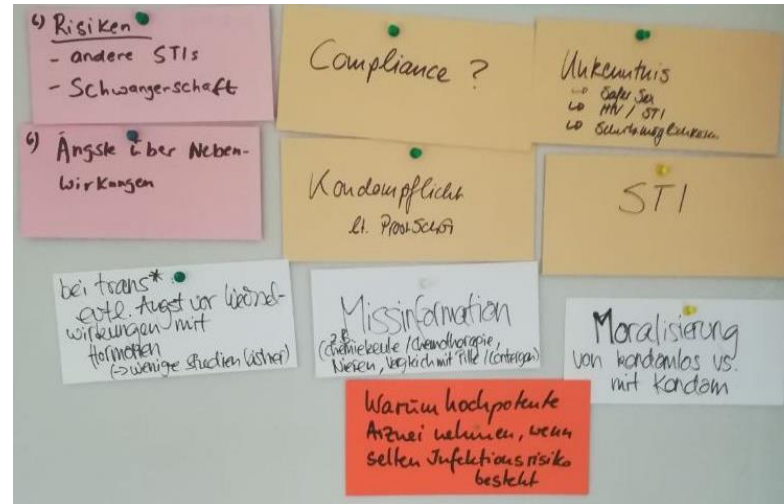 6) Risiken
- andere STIs
- Schwangerschaft
Compliance ?
Unkenntnis
↳ Safer Sex
↳ HIV / STI
↳ Schutzmöglichkeiten
6) Ängste über Neben-
wirkungen
Kondompflicht
lt. ProstSchG
STI
bei trans*
evtl. Angst vor Wechsel-
wirkungen mit
Hormonen
(-> wenige Studien bisher)
Missinformation
(z.B. Chemiekeule / Chemotherapie,
Nieren, Vergleich mit Pille / Contergan)
Moralisierung
von kondomlos vs.
mit Kondom
Warum hochpotente
Arznei nehmen, wenn
selten Infektionsrisiko
besteht